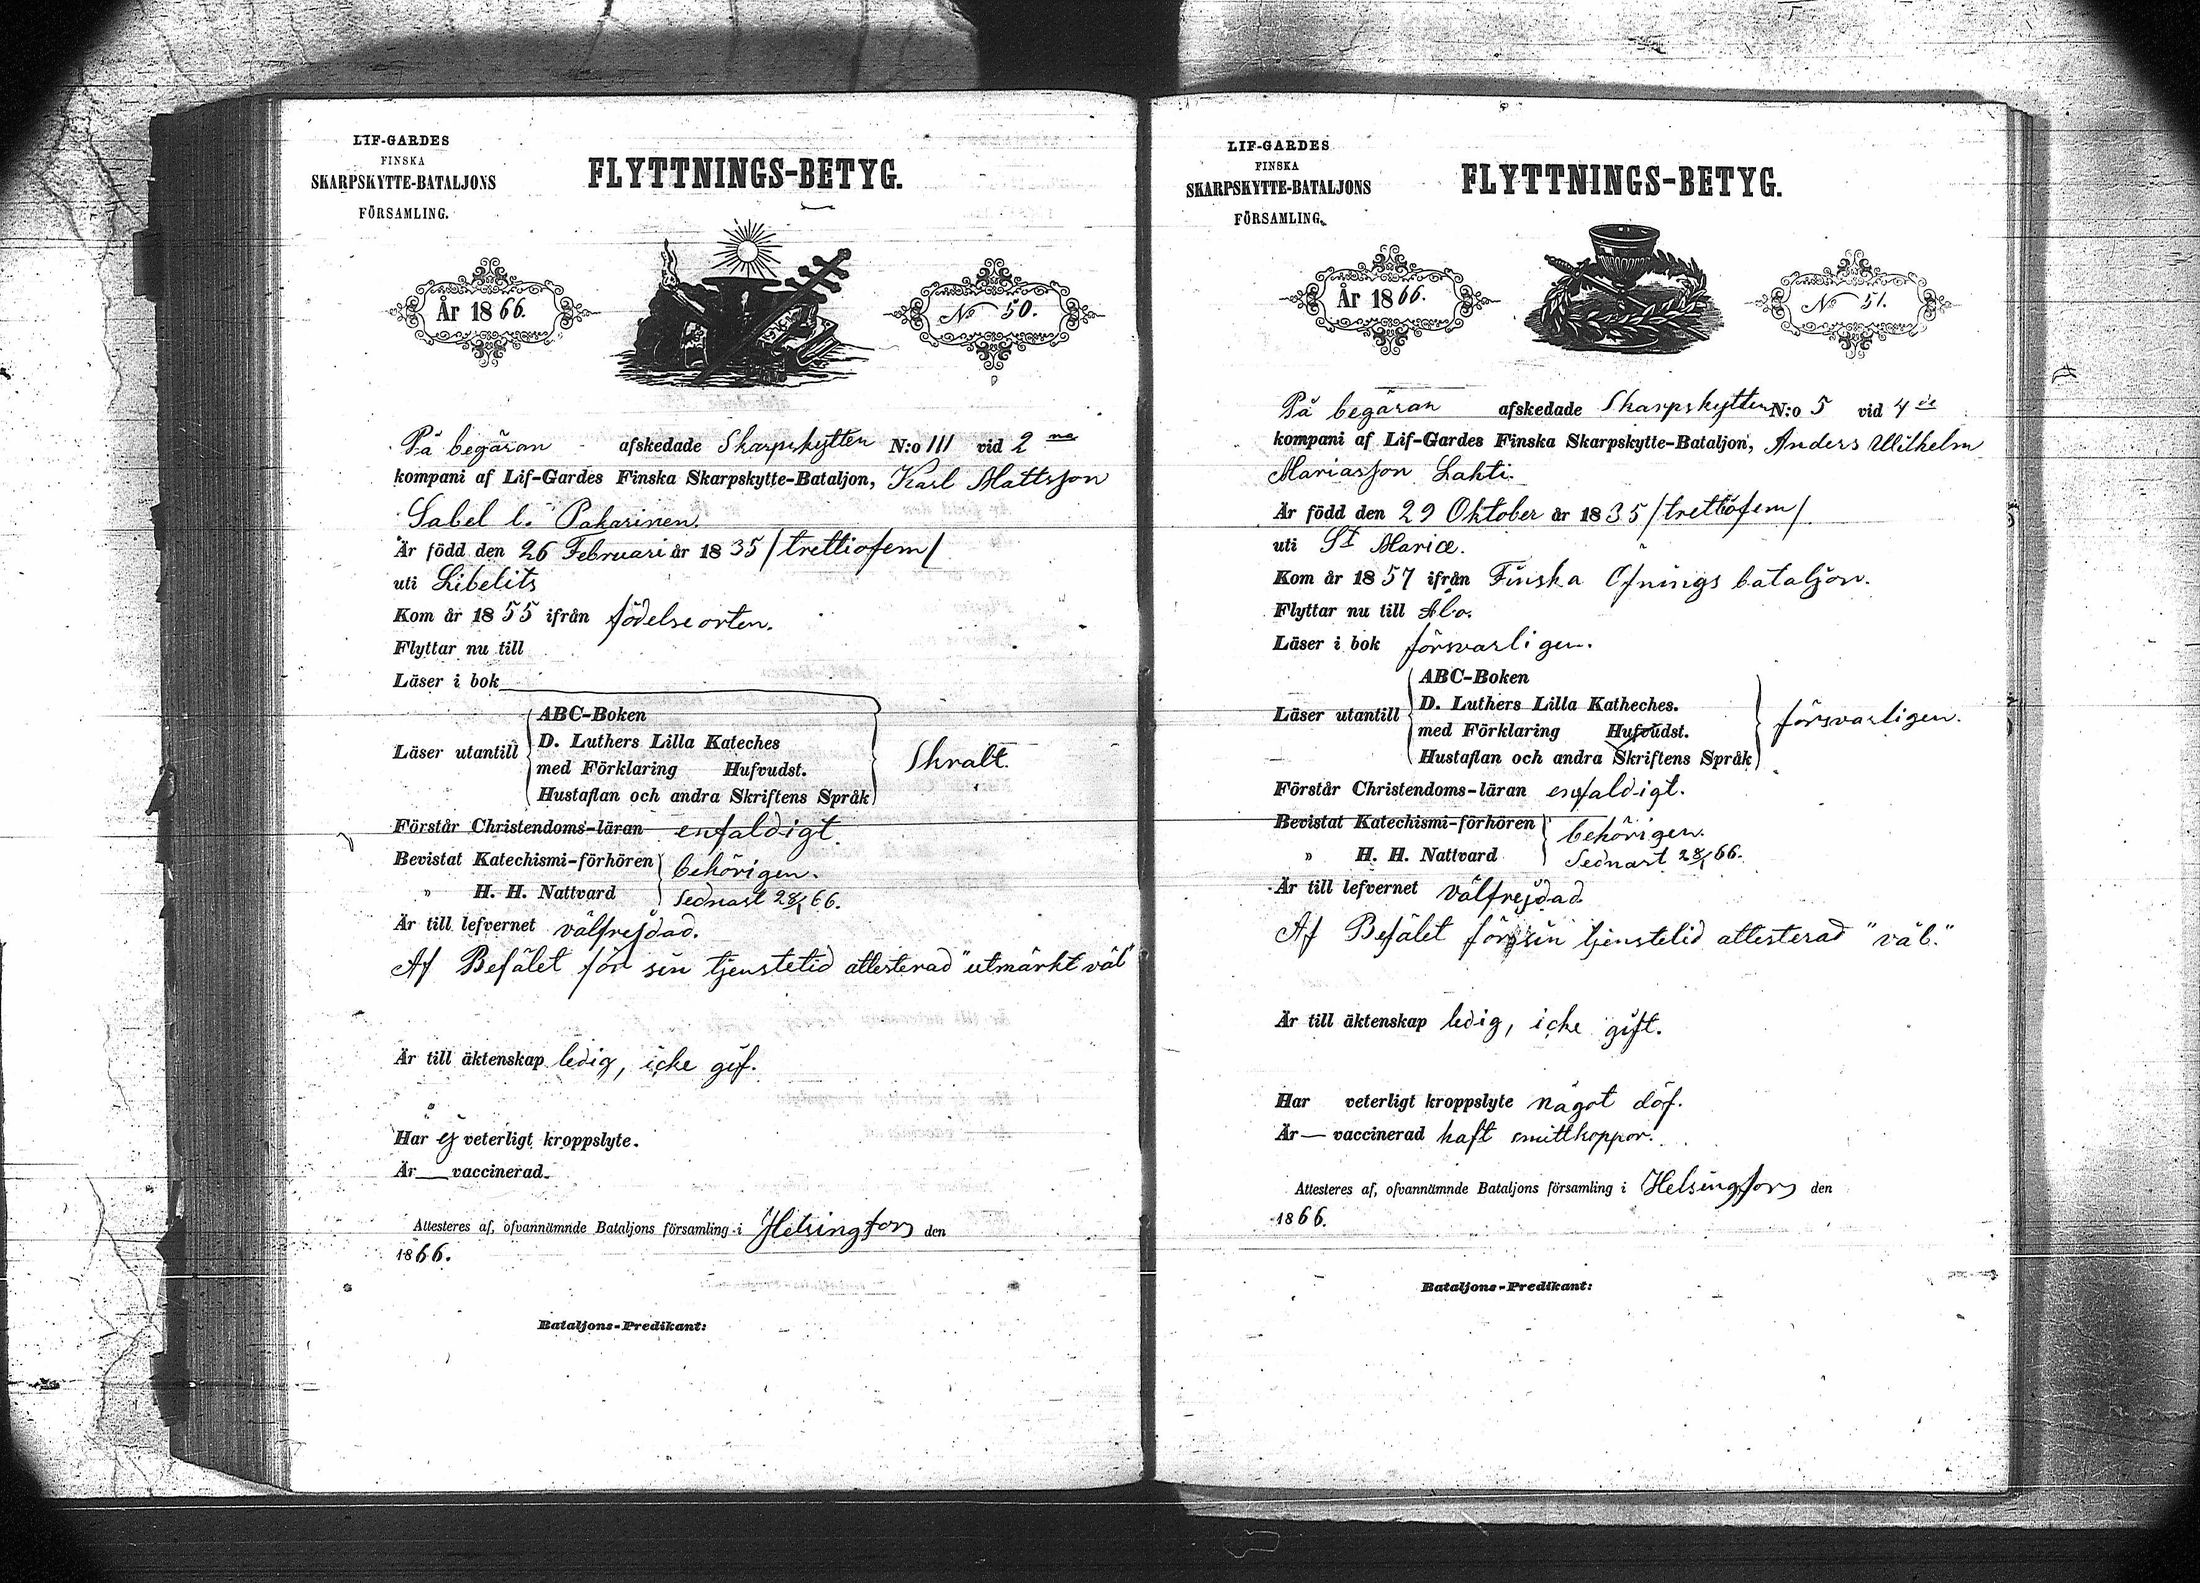 LIF-GARDES
FINSKA
SKARPSKYTTE-BATALJONS
FÖRSAMLING.
FLYTTNINGS-BETYG.
År 1866.
No 50.
På begäran afskedade Skarpskytten N:o 111 vid 2 na
kompani af Lif-Gardes Finska Skarpskytte-Bataljon, Karl Mattsson
Sabel l. Pakarinen.
Är född den 26 Februari år 1835 / trettiofem /
uti Libelits
Kom år 1855 ifrån födelseorten.
Flyttar nu till
Läser i bok
Läser utantill
ABC-Boken
D. Luthers Lilla Kateches
med Förklaring Hufvudst.
Hustaflan och andra Skriftens Språk
Skralt.
Förstår Christendoms-läran enfaldigt.
Bevistat Katechismi-förhören behörigen.
" H. H. Nattvard Sednast 28/1 66.
Är till lefvernet välfrejdad.
Af Befälet för sin tjenstetid attesterad "utmärkt väl"
Är till äktenskap ledig, icke gif.
Har ej veterligt kroppslyte.
Är — vaccinerad.
Attesteres af, ofvannämnde Bataljons församling i Helsingfors den
1866.
Bataljons-Predikant:
LIF-GARDES
FINSKA
SKARPSKYTTE-BATALJONS
FÖRSAMLING.
FLYTTNINGS-BETYG.
År 1866.
No 51.
På begäran afskedade Skarpskytten N:o 5 vid 4 de
kompani af Lif-Gardes Finska Skarpskytte-Bataljon, Anders Wilhelm
Mariasson Lahti.
Är född den 29 Oktober år 1835 / trettiofem /
uti St Mariæ.
Kom år 1857 ifrån Finska Öfnings bataljon.
Flyttar nu till Åbo.
Läser i bok försvarligen.
Läser utantill
ABC-Boken
D. Luthers Lilla Katheches.
med Förklaring Hufvudst.
Hustaflan och andra Skriftens Språk
försvarligen.
Förstår Christendoms-läran enfaldigt.
Bevistat Katechismi-förhören behörigen.
" H. H. Nattvard Sednast 28/1 66.
Är till lefvernet välfrejdad.
Af Befälet för sin tjenstetid attesterad "väl."
Är till äktenskap ledig, icke gift.
Har veterligt kroppslyte något döf.
Är — vaccinerad haft smittkoppor.
Attesteres af, ofvannämnde Bataljons församling i Helsingfors den
1866.
Bataljons-Predikant: